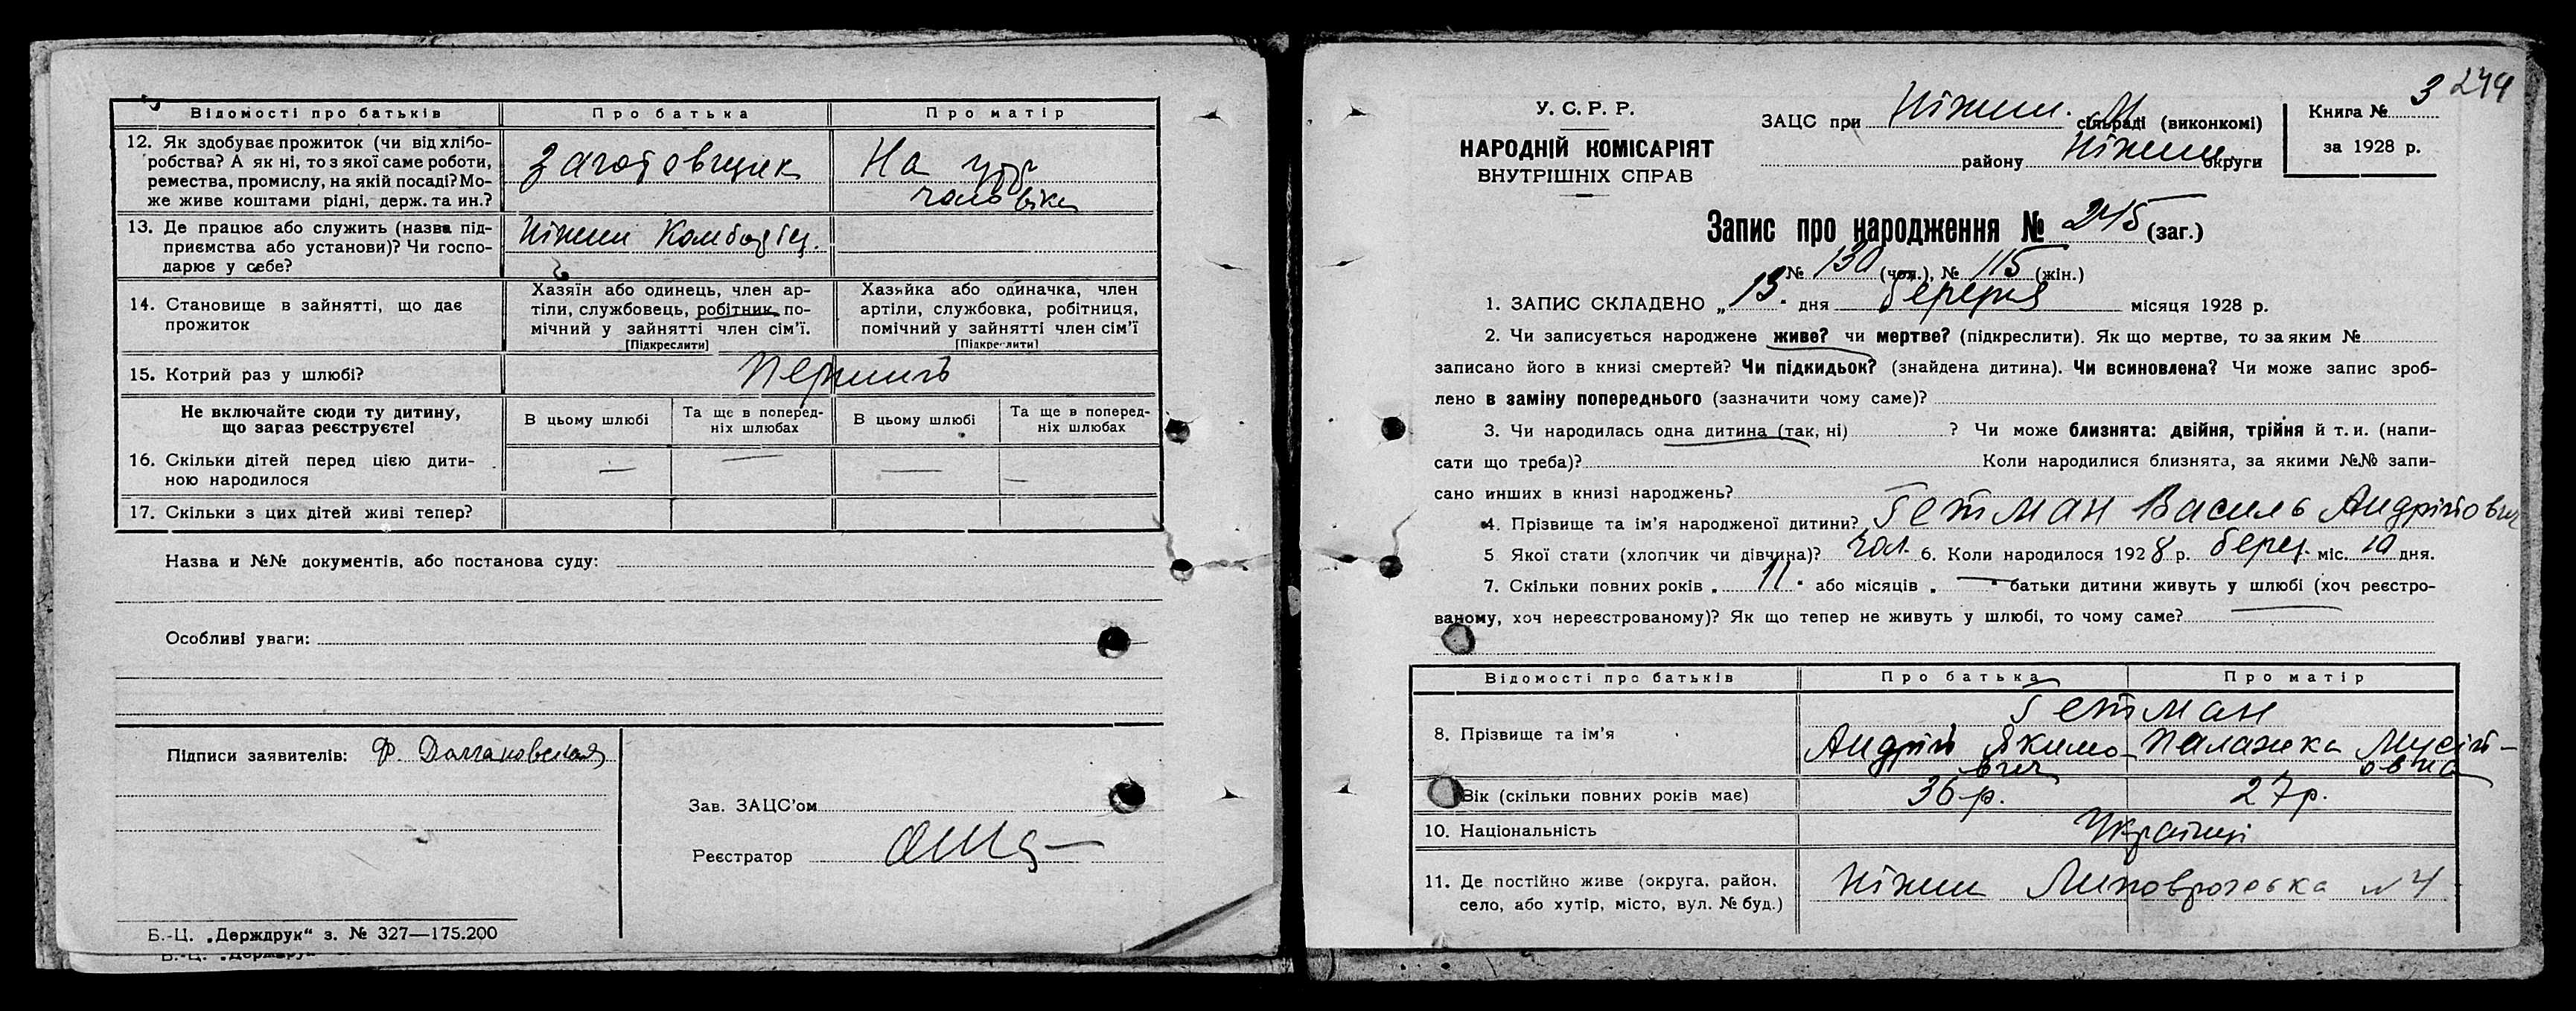 Відомості про батьків Про батька Про матір
12. Як здобуває прожиток (чи від хлібо-
робства? А як ні, то з якої саме роботи,
ремества, промислу, на якій посаді? Мо-
же живе коштами рідні, держ. та ин.?
Заготовщик На утр
чоловіка
13. Де працює або служить (назва під-
приємства або установи)? Чи госпо-
дарює у себе?
Ніжин
14. Становище в зайнятті, що дає
прожиток
Хазяїн або одинець, член ар-
тіли, службовець, робітник, по-
мічний у зайнятті член сім'ї.
[Підкреслити]
Хазяйка або одиначка, член
артіли, службовка, робітниця,
помічний у зайнятті член сім'ї
[Підкреслити]
15. Котрий раз у шлюбі?
Не включайте сюди ту дитину,
що зараз реєструєте!
В цьому шлюбі
Та ще в поперед-
ніх шлюбах
В цьому шлюбі
Та ще в поперед-
ніх шлюбах
16. Скільки дітей перед цією дити-
ною народилося — — — —
17. Скільки з цих дітей живі тепер?
Назва и №№ документів, або постанова суду:
Особливі уваги:
Підписи заявителів: Ф.
Зав. ЗАЦС'ом
Реєстратор
Б.-Ц. „Держдрук“ з. № 327—175.200
Б.-Ц. „Держдрук“
244
У. С. Р. Р.
НАРОДНІЙ КОМІСАРІЯТ
ВНУТРІШНІХ СПРАВ
ЗАЦС при Ніжин. М сільраді (виконкомі)
району Ніжин. округи
Книга № 3
за 1928 р.
Запис про народження № 245 (заг.)
№ 130 (чол.), № 115 (жін.)
1. ЗАПИС СКЛАДЕНО „13“ дня березня місяця 1928 р.
2. Чи записується народжене живе? чи мертве? (підкреслити). Як що мертве, то за яким №
записано його в книзі смертей? Чи підкидьок? (знайдена дитина). Чи всиновлена? Чи може запис зроб-
лено в заміну попереднього (зазначити чому саме)?
3. Чи народилась одна дитина (так, ні) ? Чи може близнята: двійня, трійня й т. и. (напи-
сати що треба)? Коли народилися близнята, за якими №№ запи-
сано инших в книзі народжень?
4. Прізвище та ім'я народженої дитини? Гетман Василь Андрійович
5 Якої стати (хлопчик чи дівчина)? чол. 6. Коли народилося 1928 р. берез. міс. 10 дня.
7. Скільки повних років „11“ або місяців „—“ батьки дитини живуть у шлюбі (хоч реєстро-
ваному, хоч нереєстрованому)? Як що тепер не живуть у шлюбі, то чому саме?
Відомості про батьків Про батька Про матір
Гетман
8. Прізвище та ім'я Андрій Якимо- Палажка Мусій-
вич овна
Вік (скільки повних років має) 36 р. 27 р.
10. Національність Українці
11. Де постійно живе (округа, район,
село, або хутір, місто, вул. № буд.)
Ніжин Липоврозька № 4